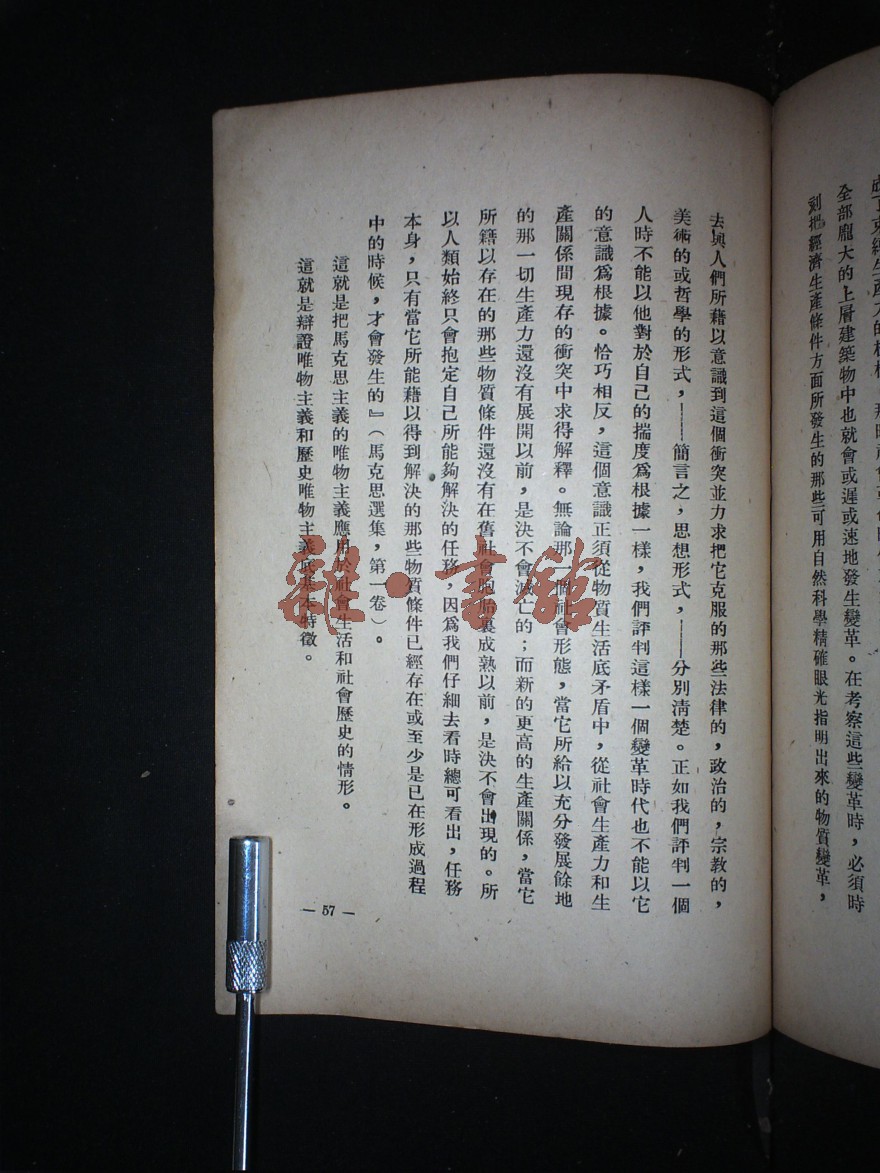 全部龐大的上層建築物中也就會或遲或速地發生變革。在考察這些變革時，必須時
刻把經濟生產條件方面所發生的那些可用自然科學精確眼光指明出來的物質變革，
去與人們所藉以意識到這個衝突並力求把它克服的那些法律的，政治的，宗教的，
美術的或哲學的形式，——簡言之，思想形式，——分別清楚。正如我們評判一個
人時不能以他對於自己的揣度爲根據一樣，我們評判這樣一個變革時代也不能以它
的意識爲根據。恰巧相反，這個意識正須從物質生活底矛盾中，從社會生產力和生
產關係間現存的衝突中求得解釋。無論那一個社會形態，當它所給以充分發展餘地
的那一切生產力還沒有展開以前，是決不會滅亡的；而新的更高的生產關係，當它
所籍以存在的那些物質條件還沒有在舊社會胞胎裏成熟以前，是決不會出現的。所
以人類始終只會抱定自己所能夠解決的任務，因爲我們仔細去看時總可看出，任務
本身，只有當它所能藉以得到解決的那些物質條件已經存在或至少是已在形成過程
中的時候，才會發生的』（馬克思選集，第一卷）。
這就是把馬克思主義的唯物主義應用於社會生活和社會歷史的情形。
這就是辯證唯物主義和歷史唯物主義底基本特徵。
— 57 —
雜·書館